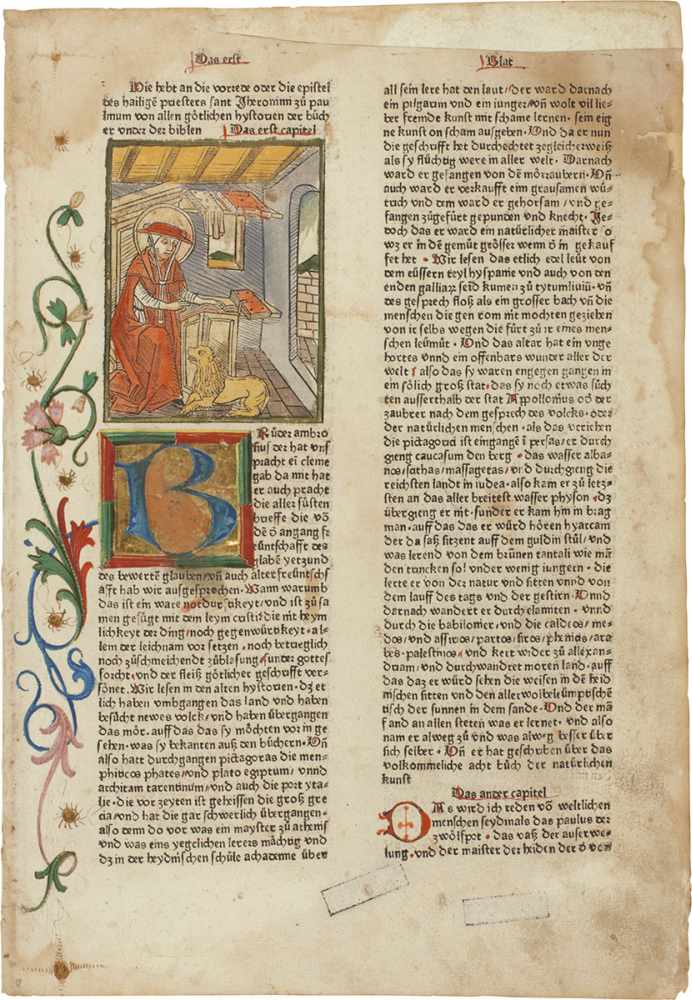 Das erst
Blat
Hie hebt an die vorrede oder die epistel
des hailigē priesters sant Iheronimi zů pau
limum von allen götlichen hystorien der büch
er vnder der biblen Das erst capitel
Růder ambro
sius der hat vnß
pracht ei cleme
gab da mit hat
er auch pracht
die aller süsten
brieffe die vō
den ō angang fr
eüntschafft des
glabē yetzund
des bewertē glauben/vn̄ auch alter freüntsch
afft hab wir außgesprochen. Wann warumb
das ist ein ware notdurfftikeyt/vnd ist zů sa
men gefügt mit dem leym cristi die nit heym
lichkeyt der ding/noch gegenwürtikeyt.al
lein der leichnam vor setzen.noch betrieglich
noch zůschmeichende zůblasung/sunder gottes
forcht.vnd der fleiß götlicher geschrifft ver-
sönet. Wir lesen in den alten hystorien.dz et
lich haben vmbgangen das land vnd haben
besůcht newes volck/vnd haben übergangen
das mör.auff das das sy möchten vor in ge
sehen.was sy bekanten auß den büchern. Vn̄
also hatt durchgangen pictagoras die men-
phiticos phates/vnd plato egiptum/vnnd
architam tarentinum/vnd auch die port yta-
lie.die vor zeyten ist geheissen die groß gre
cia/vnd hat die gar schwerlich übergangen.
also denn do vor was ein mayster zů athenis
vnd was eins yegclichen lerers mächtig vnd
dz in der heydnischen schůle achademie über
all sein lere hat den laut/der ward darnach
ein pilgarim vnd ein iunger/vn̄ wolt vil lie-
ber fremde kunst mit schame lernen.sein eig
ne kunst on scham außgeben. Vnd da er nun
die geschrifft het durchechtet zegleicherweiß
als sy flüchtig were in aller welt. Darnach
ward er gefangen von dē mörzaubern. Vn̄
auch ward er verkaufft eim grausamen wů-
trich vnd dem ward er gehorsam/vnd ge-
fangen zůgefürt gepunden vnd knecht. Ie-
doch das er ward ein natürlicher maister so
wz er in dē gemüt grösser wenn ō in gekauf
fet het. Wir lesen das etlich edel leüt von
dem eüssern teyl hyspanie vnd auch von den
enden galliaꝝ seid kumen zů tytumliuiū.vn̄
des gesprech floß als ein grosser bach vn̄ die
menschen die gen rom nit mochten geziehen
von ir selbs wegen die fürt zů ir eines men-
schen leümut. Vnd das altar hat ein vnge
hortes vnnd ein offenbars wunder aller der
welt/also das sy waren engegen gangen in
ein sölich groß stat.das sy noch etwas süch
ten ausserthalb der stat Appollonius oō der
zaubrer nach dem gesprech des volcks.oder
der natürlichen menschen.als das verichen
die pictagorici ist eingangē i persas/er durch
gieng caucasum den berg.das wasser alba-
nos/scithas/massagetas/vnd durchgieng die
reichsten landt in iudea.also kam er zů letz-
sten an das aller breitest wasser physon.dz
übergieng er nit.sunder er kam hin in brag
man.auff das das er würd hören hyarcam
der da saß sitzent auff dem guldin stůl/vnd
was lerend von dem brünen tantali wie mā
den truncken so! vnder wenig iungern.die
lerte er von der natur vnd sitten vnnd von
dem lauff des tags vnd der gestirn. Vnnd
darnach wandert er durch elamiten.vnnd
durch die babilonier/vnd die caldeos/me-
dos/vnd assirios/partos/siros/phenios/ara
bes.palestinos/vnd kert wider zů allexan-
driam/vnd durchwandret moren land.auff
das daz er würd sehen die weisen in dē heid
nischen sitten vnd den allerwolbelümptischē
tisch der sunnen in dem sande. Vnd der mā
fand an allen steten was er lernet.vnd also
nam er alweg zů vnd was alweg besser über
sich selber. Vn̄ er hat geschriben über das
volkommeliche acht bůch der natürlichen
kunst
Das ander capitel
DAs wird ich reden vō weltlichen
menschen seydmals das paulus der
zwölfpot.das vaß der außerwe-
lung.vnd der maister der heiden der ō von